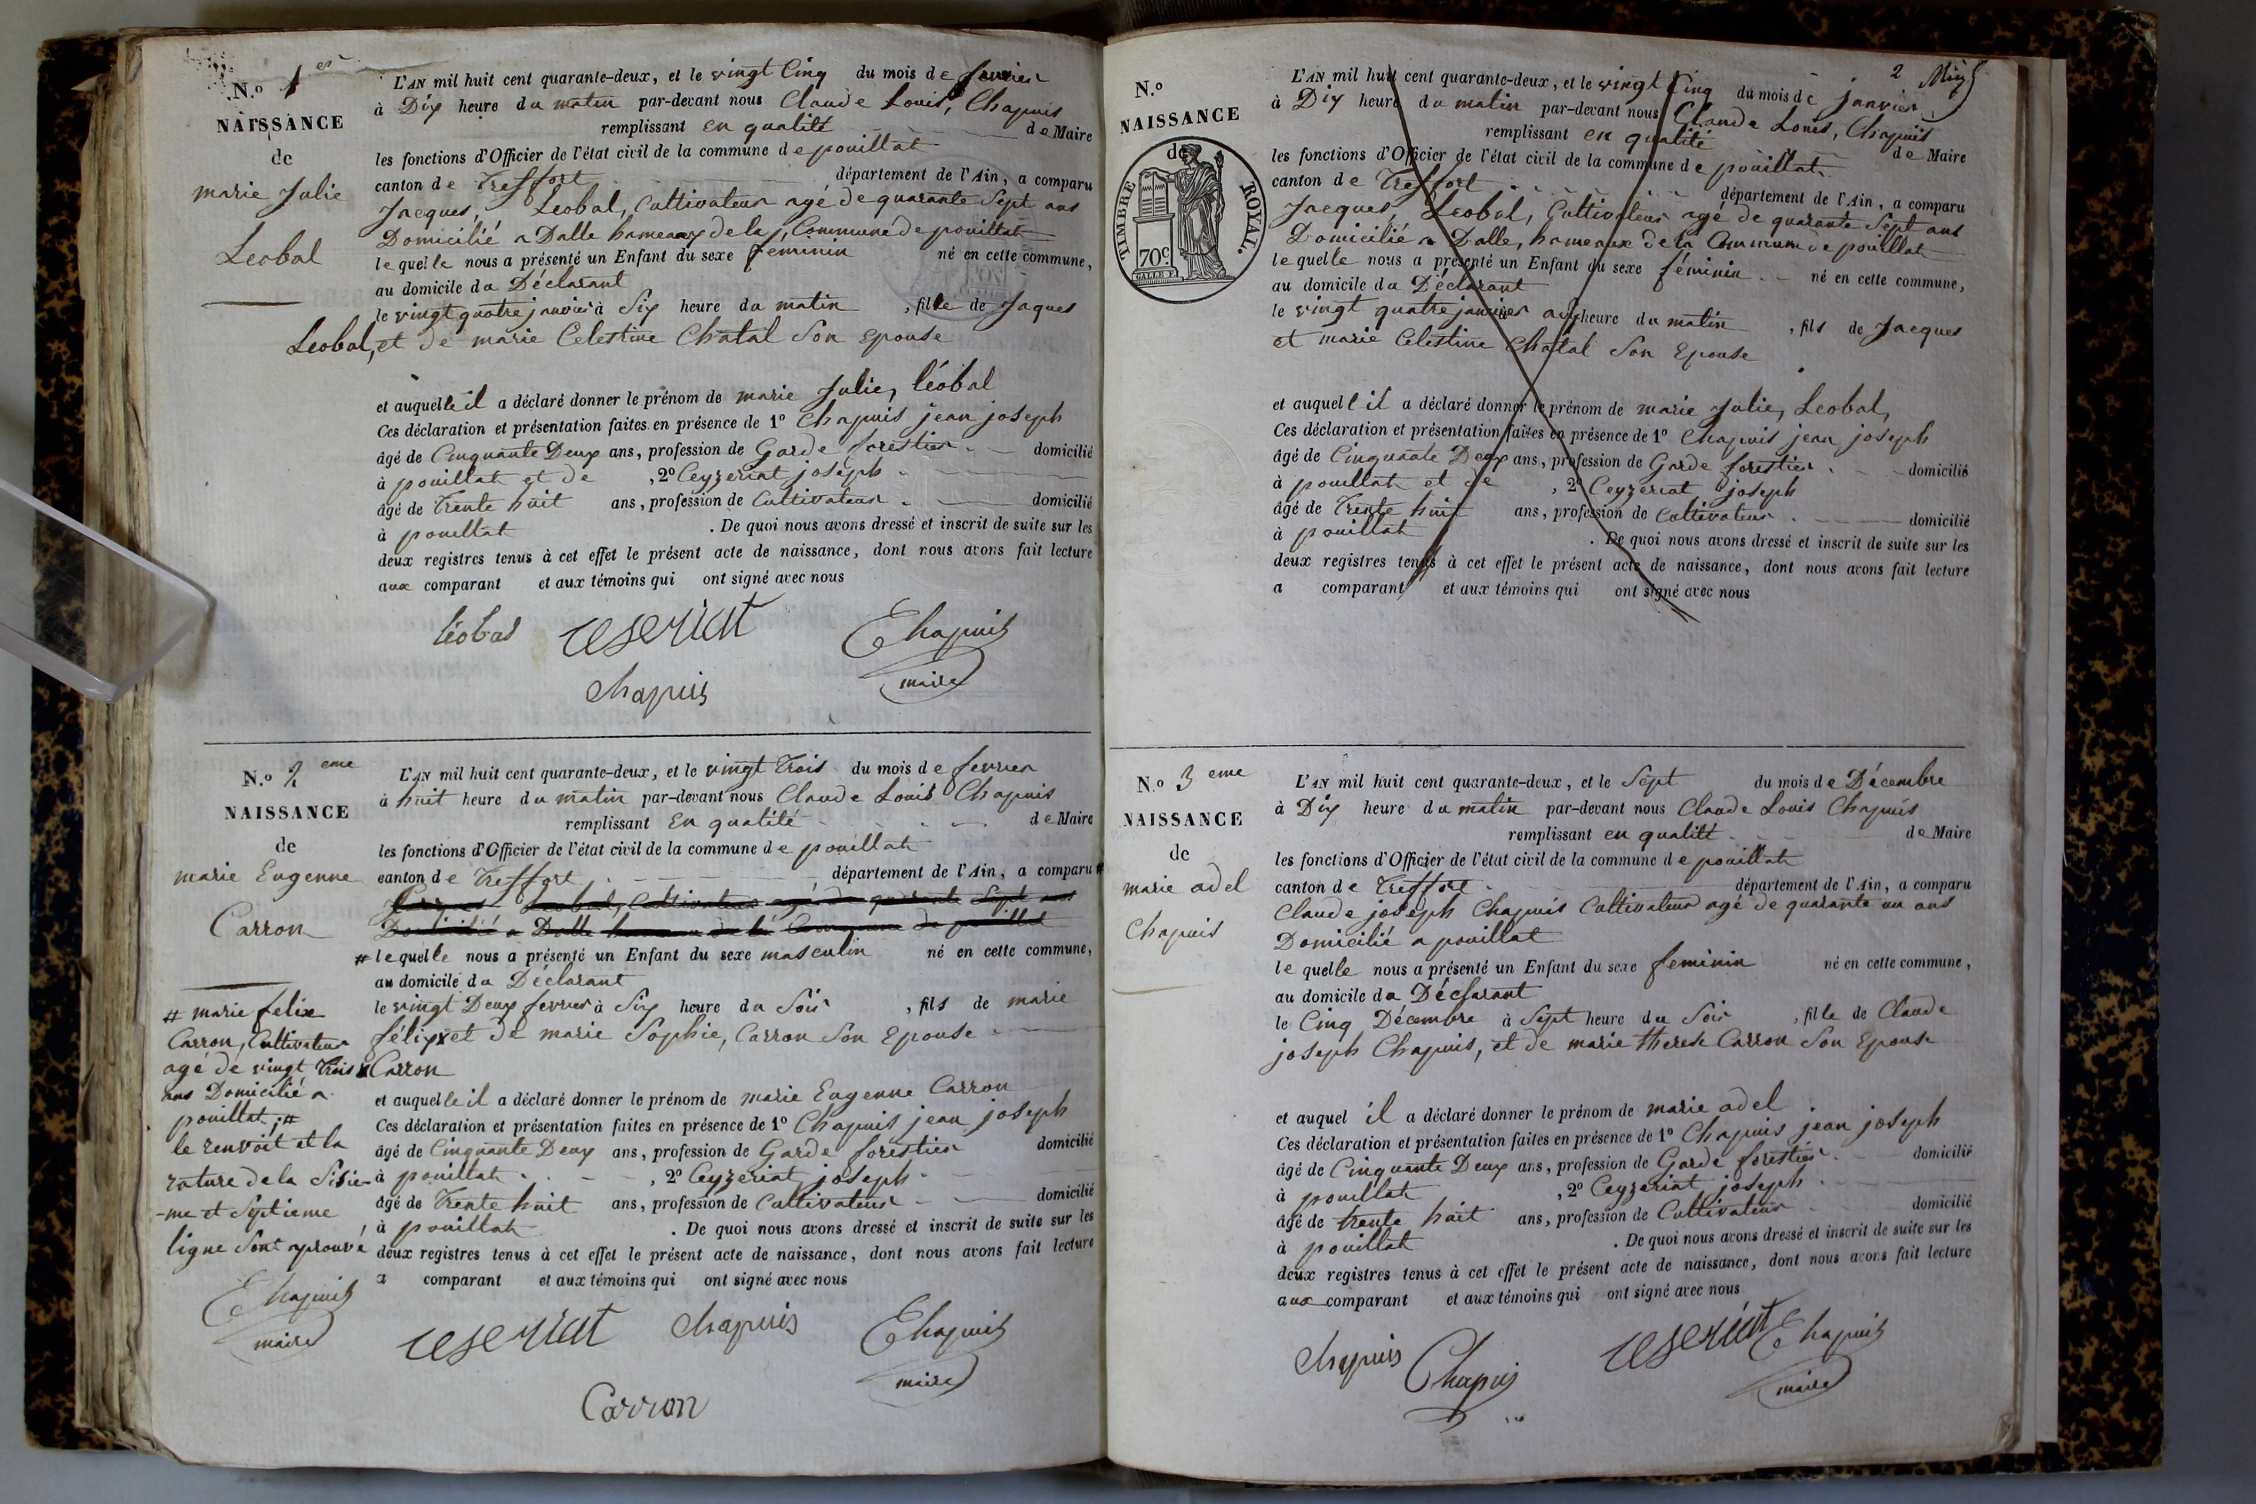 N.o 1er
NAISSANCE
de
marie Julie
Leobal
L'AN mil huit cent quarante-deux, et le vingt Cinq du mois de fevrier
à Dix heure du matin par-devant nous Claude Louis, Chapuis
remplissant en qualité de Maire
les fonctions d'Officier de l'état civil de la commune de pouillat
canton de Treffort département de l'Ain, a comparu
Jacques, Leobal, Cultivateur agé de quarante Sept ans
Domicilié a Dalle hameaux de la Commune de pouillat
lequelle nous a présenté un Enfant du sexe féminin né en cette commune,
au domicile du Déclarant
le vingt quatre janvier à Six heure du matin , fille de Jaques
Leobal, et de marie Celestine Chatal Son epouse
et auquelle il a déclaré donner le prénom de marie Julie, léobal
Ces déclaration et présentation faites en présence de 1o Chapuis jean joseph
âgé de Cinquante Deux ans, profession de Garde forestier domicilié
à pouillat et de , 2o Ceyzeriat joseph
âgé de Trente huit ans, profession de Cultivateur domicilié
à pouillat . De quoi nous avons dressé et inscrit de suite sur les
deux registres tenus à cet effet le présent acte de naissance, dont nous avons fait lecture
aux comparant et aux témoins qui ont signé avec nous
léobal ceseriat Chapuis
chapuis maire
N.o 2eme
NAISSANCE
de
marie Eugenne
Carron
# marie felix
Carron, Cultivateur
agé de vingt trois
ans Domicilié a
pouillat, #
le renvoit et la
rature de la Sisie
-me et Septieme
ligne Sont aprouvé
Chapuis
maire
L'AN mil huit cent quarante-deux, et le vingt Trois du mois de fevrier
à huit heure du matin par-devant nous Claude Louis Chapuis
remplissant En qualité de Maire
les fonctions d'Officier de l'état civil de la commune de pouillat
canton de Treffort département de l'Ain, a comparu #
Jacques Leobal, Cultivateur agé de quarante Sept ans
Domicilié a Dalle hameau de la Commune de pouillat
# lequelle nous a présenté un Enfant du sexe masculin né en cette commune,
au domicile du Déclarant
le vingt Deux fevrier à Six heure du Soir , fils de marie
félix et de marie Sophie, Carron Son Epouse
Carron
et auquelle il a déclaré donner le prénom de marie Eugenne Carron
Ces déclaration et présentation faites en présence de 1o Chapuis jean joseph
âgé de Cinquante Deux ans, profession de Garde forestier domicilié
à pouillat , 2o Ceyzeriat joseph
âgé de Trente huit ans, profession de Cultivateur domicilié
à pouillat . De quoi nous avons dressé et inscrit de suite sur les
deux registres tenus à cet effet le présent acte de naissance, dont nous avons fait lecture
a comparant et aux témoins qui ont signé avec nous
ceseriat chapuis Chapuis
maire
Carron
2
N.o
NAISSANCE
de
TIMBRE ROYAL.
70c.
L'AN mil huit cent quarante-deux, et le vingt Cinq du mois de janvier
à Dix heure du matin par-devant nous Claude Louis, Chapuis
remplissant en qualité de Maire
les fonctions d'Officier de l'état civil de la commune de pouillat
canton de Treffort département de l'Ain, a comparu
Jacques, Leobal, Cultivateur agé de quarante Sept ans
Domicilié a Dalle, hameaux de la Commune de pouillat
lequelle nous a présenté un Enfant du sexe féminin né en cette commune,
au domicile du Déclarant
le vingt quatre janvier à six heure du matin , fils de Jacques
et marie Celestine Chatal Son Epouse
et auquel il a déclaré donner le prénom de marie Julie, Leobal,
Ces déclaration et présentation faites en présence de 1o Chapuis jean joseph
âgé de Cinquante Deux ans, profession de Garde forestier domicilié
à pouillat et de , 2o Ceyzeriat joseph
âgé de Trente huit ans, profession de Cultivateur domicilié
à pouillat . De quoi nous avons dressé et inscrit de suite sur les
deux registres tenus à cet effet le présent acte de naissance, dont nous avons fait lecture
a comparant et aux témoins qui ont signé avec nous
N.o 3eme
NAISSANCE
de
marie adel
Chapuis
L'AN mil huit cent quarante-deux, et le Sept du mois de Décembre
à Dix heure du matin par-devant nous Claude Louis Chapuis
remplissant en qualité de Maire
les fonctions d'Officier de l'état civil de la commune de pouillat
canton de Treffort département de l'Ain, a comparu
Claude joseph Chapuis Cultivateur agé de quarante un ans
Domicilié a pouillat
lequelle nous a présenté un Enfant du sexe feminin né en cette commune,
au domicile du Déclarant
le Cinq Décembre à Sept heure du Soir , fille de Claude
joseph Chapuis, et de marie therese Carron Son Epouse
et auquel il a déclaré donner le prénom de marie adel
Ces déclaration et présentation faites en présence de 1o Chapuis jean joseph
âgé de Cinquante Deux ans, profession de Garde forestier domicilié
à pouillat , 2o Ceyzeriat joseph
âgé de trente huit ans, profession de Cultivateur domicilié
à pouillat . De quoi nous avons dressé et inscrit de suite sur les
deux registres tenus à cet effet le présent acte de naissance, dont nous avons fait lecture
aux comparant et aux témoins qui ont signé avec nous
chapuis Chapuis ceseriat Chapuis
maire